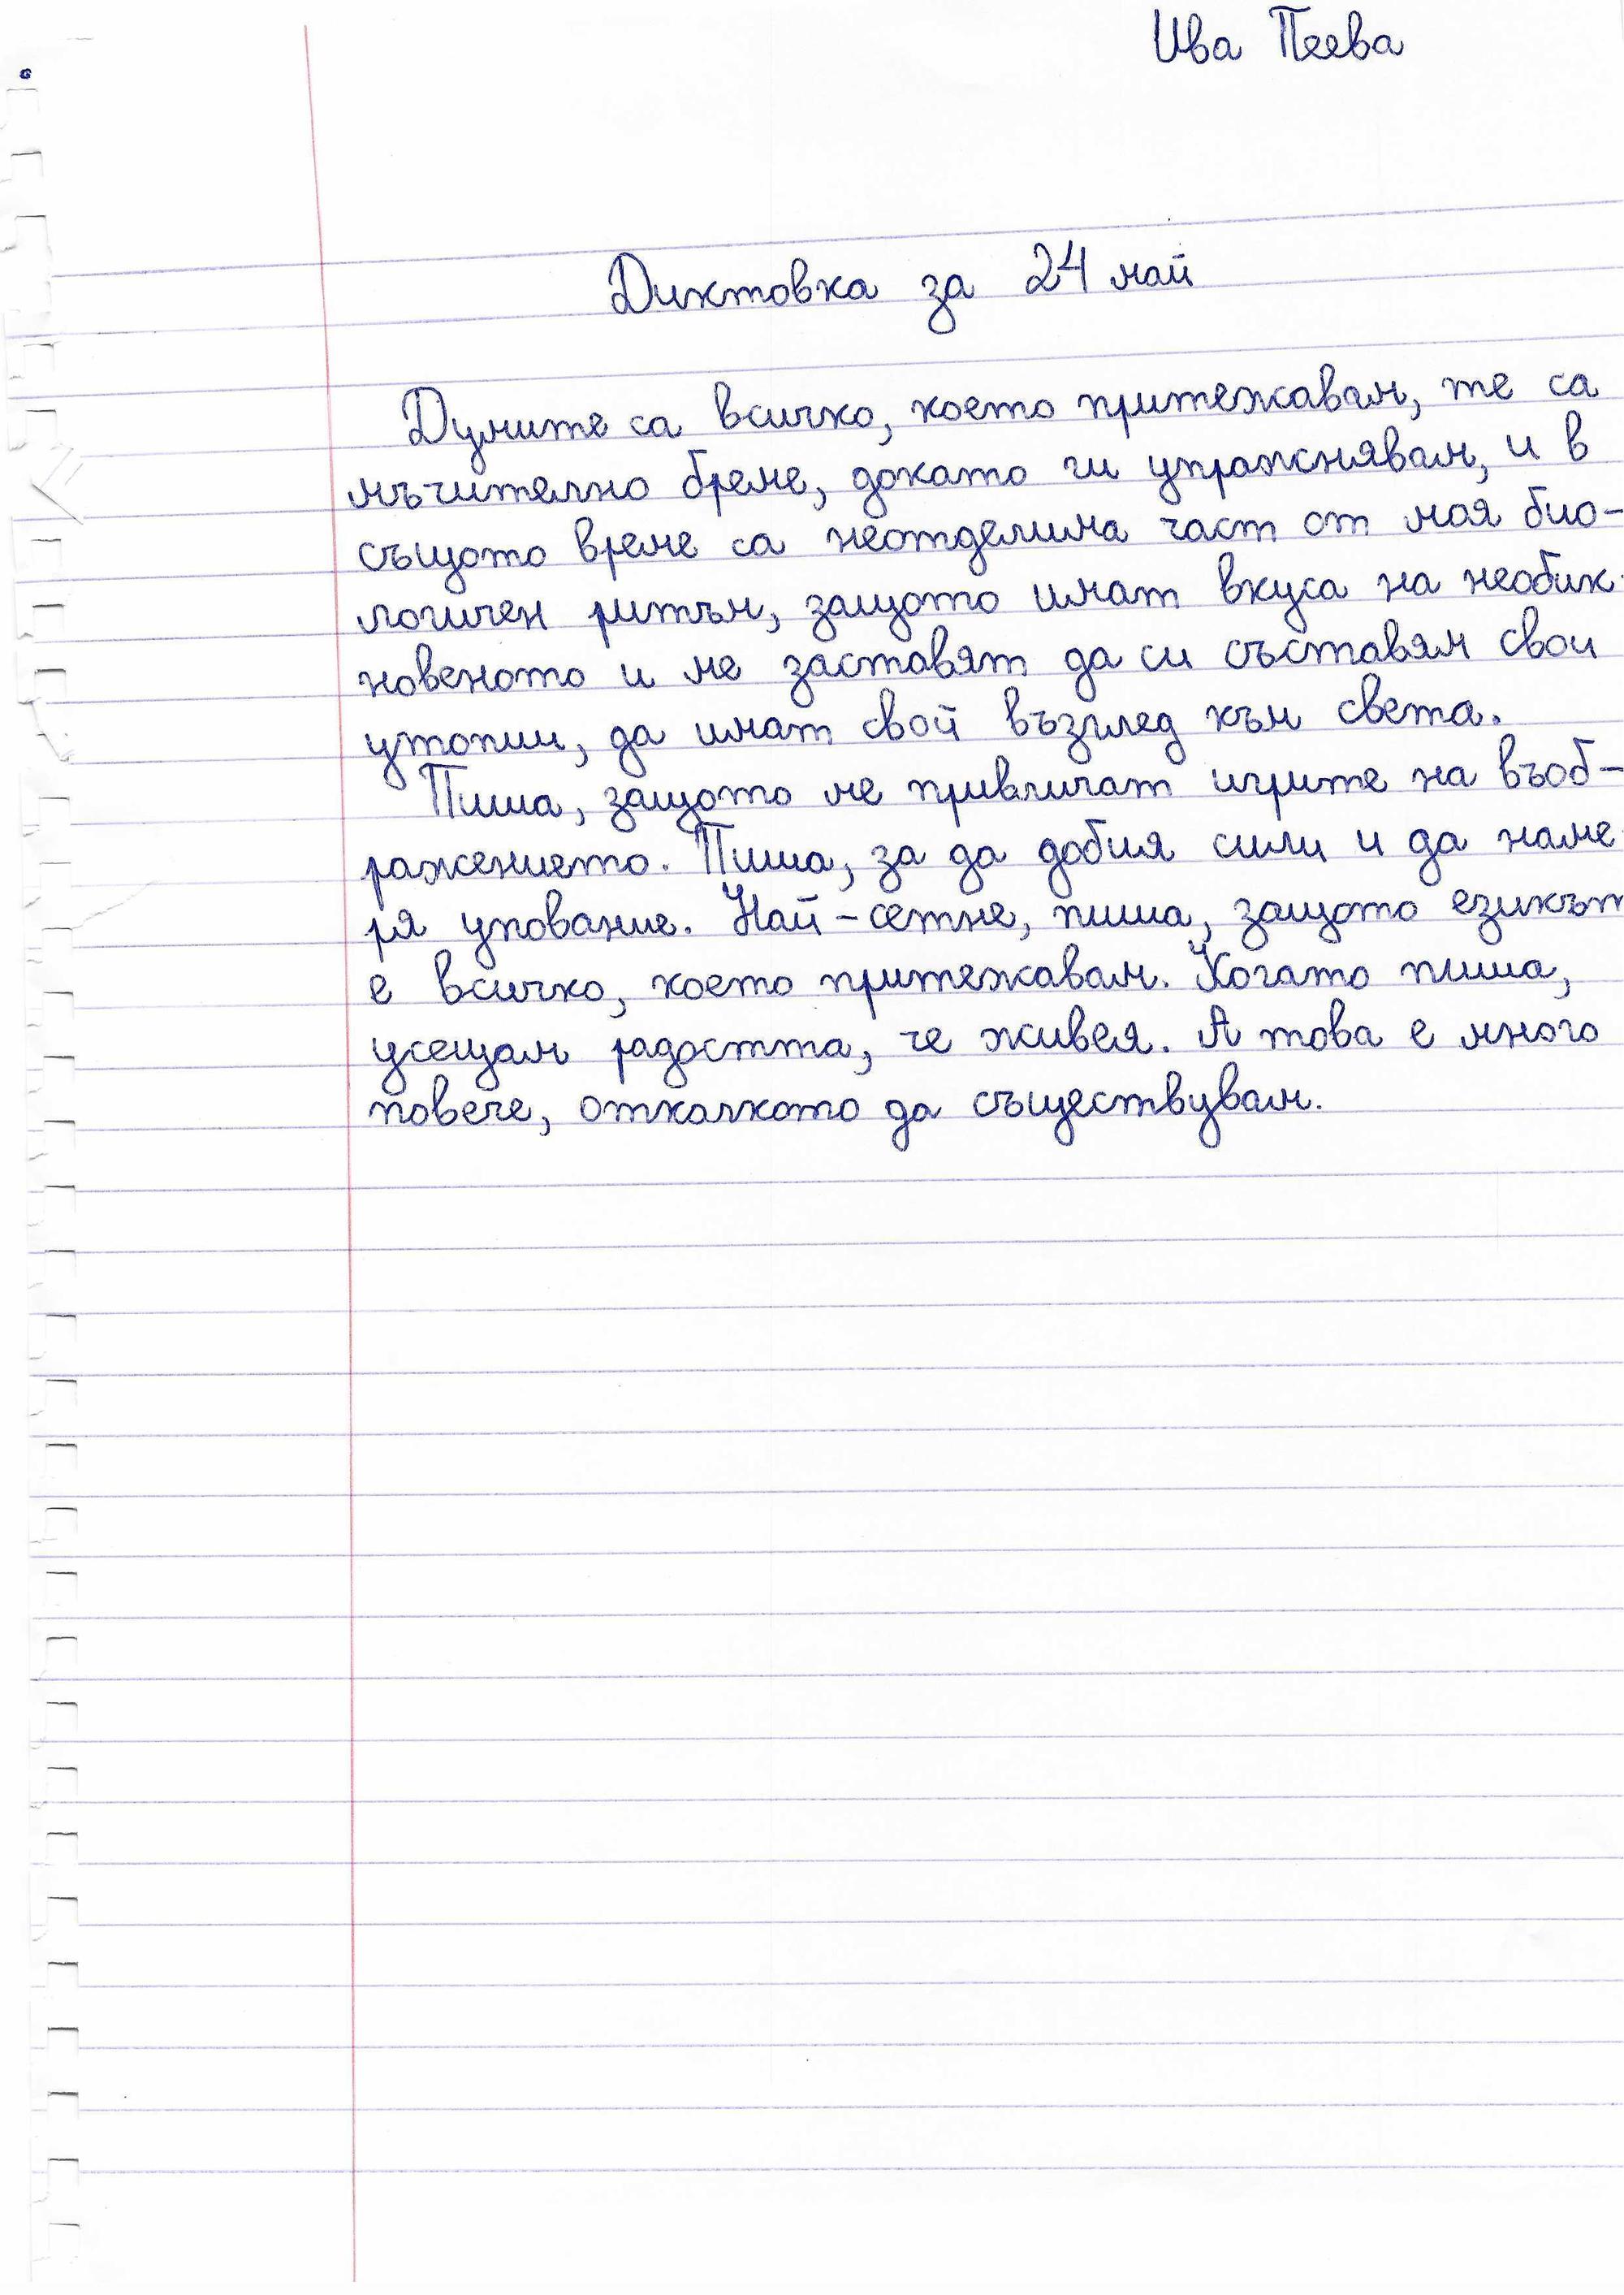 Ива Пеева
Диктовка за 24 май
Думите са всичко, което притежавам, те са
мъчително бреме, докато ги упражнявам, и в
същото време са неотделима част от моя био-
логичен ритъм, защото имат вкуса на необик-
новеното и ме заставят да си съставям свои
утопии, да имат свой възглед към света.
Пиша, защото ме привличат игрите на въоб-
ражението. Пиша, за да добия сили и да наме-
ря упование. Най-сетне, пиша, защото езикът
е всичко, което притежавам. Когато пиша,
усещам радостта, че живея. А това е много
повече, отколкото да съществувам.